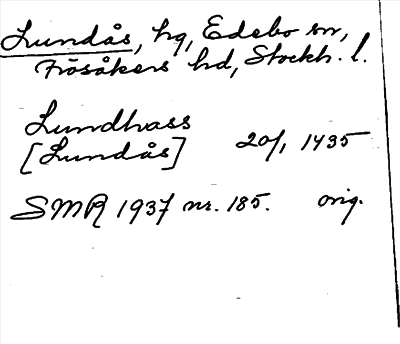 Lundås, hg, Edebo sn,
Frösåkers hd, Stockh. l.
Lundhass
[Lundås] 20/1 1435
SMR 1937 nr. 185. orig.